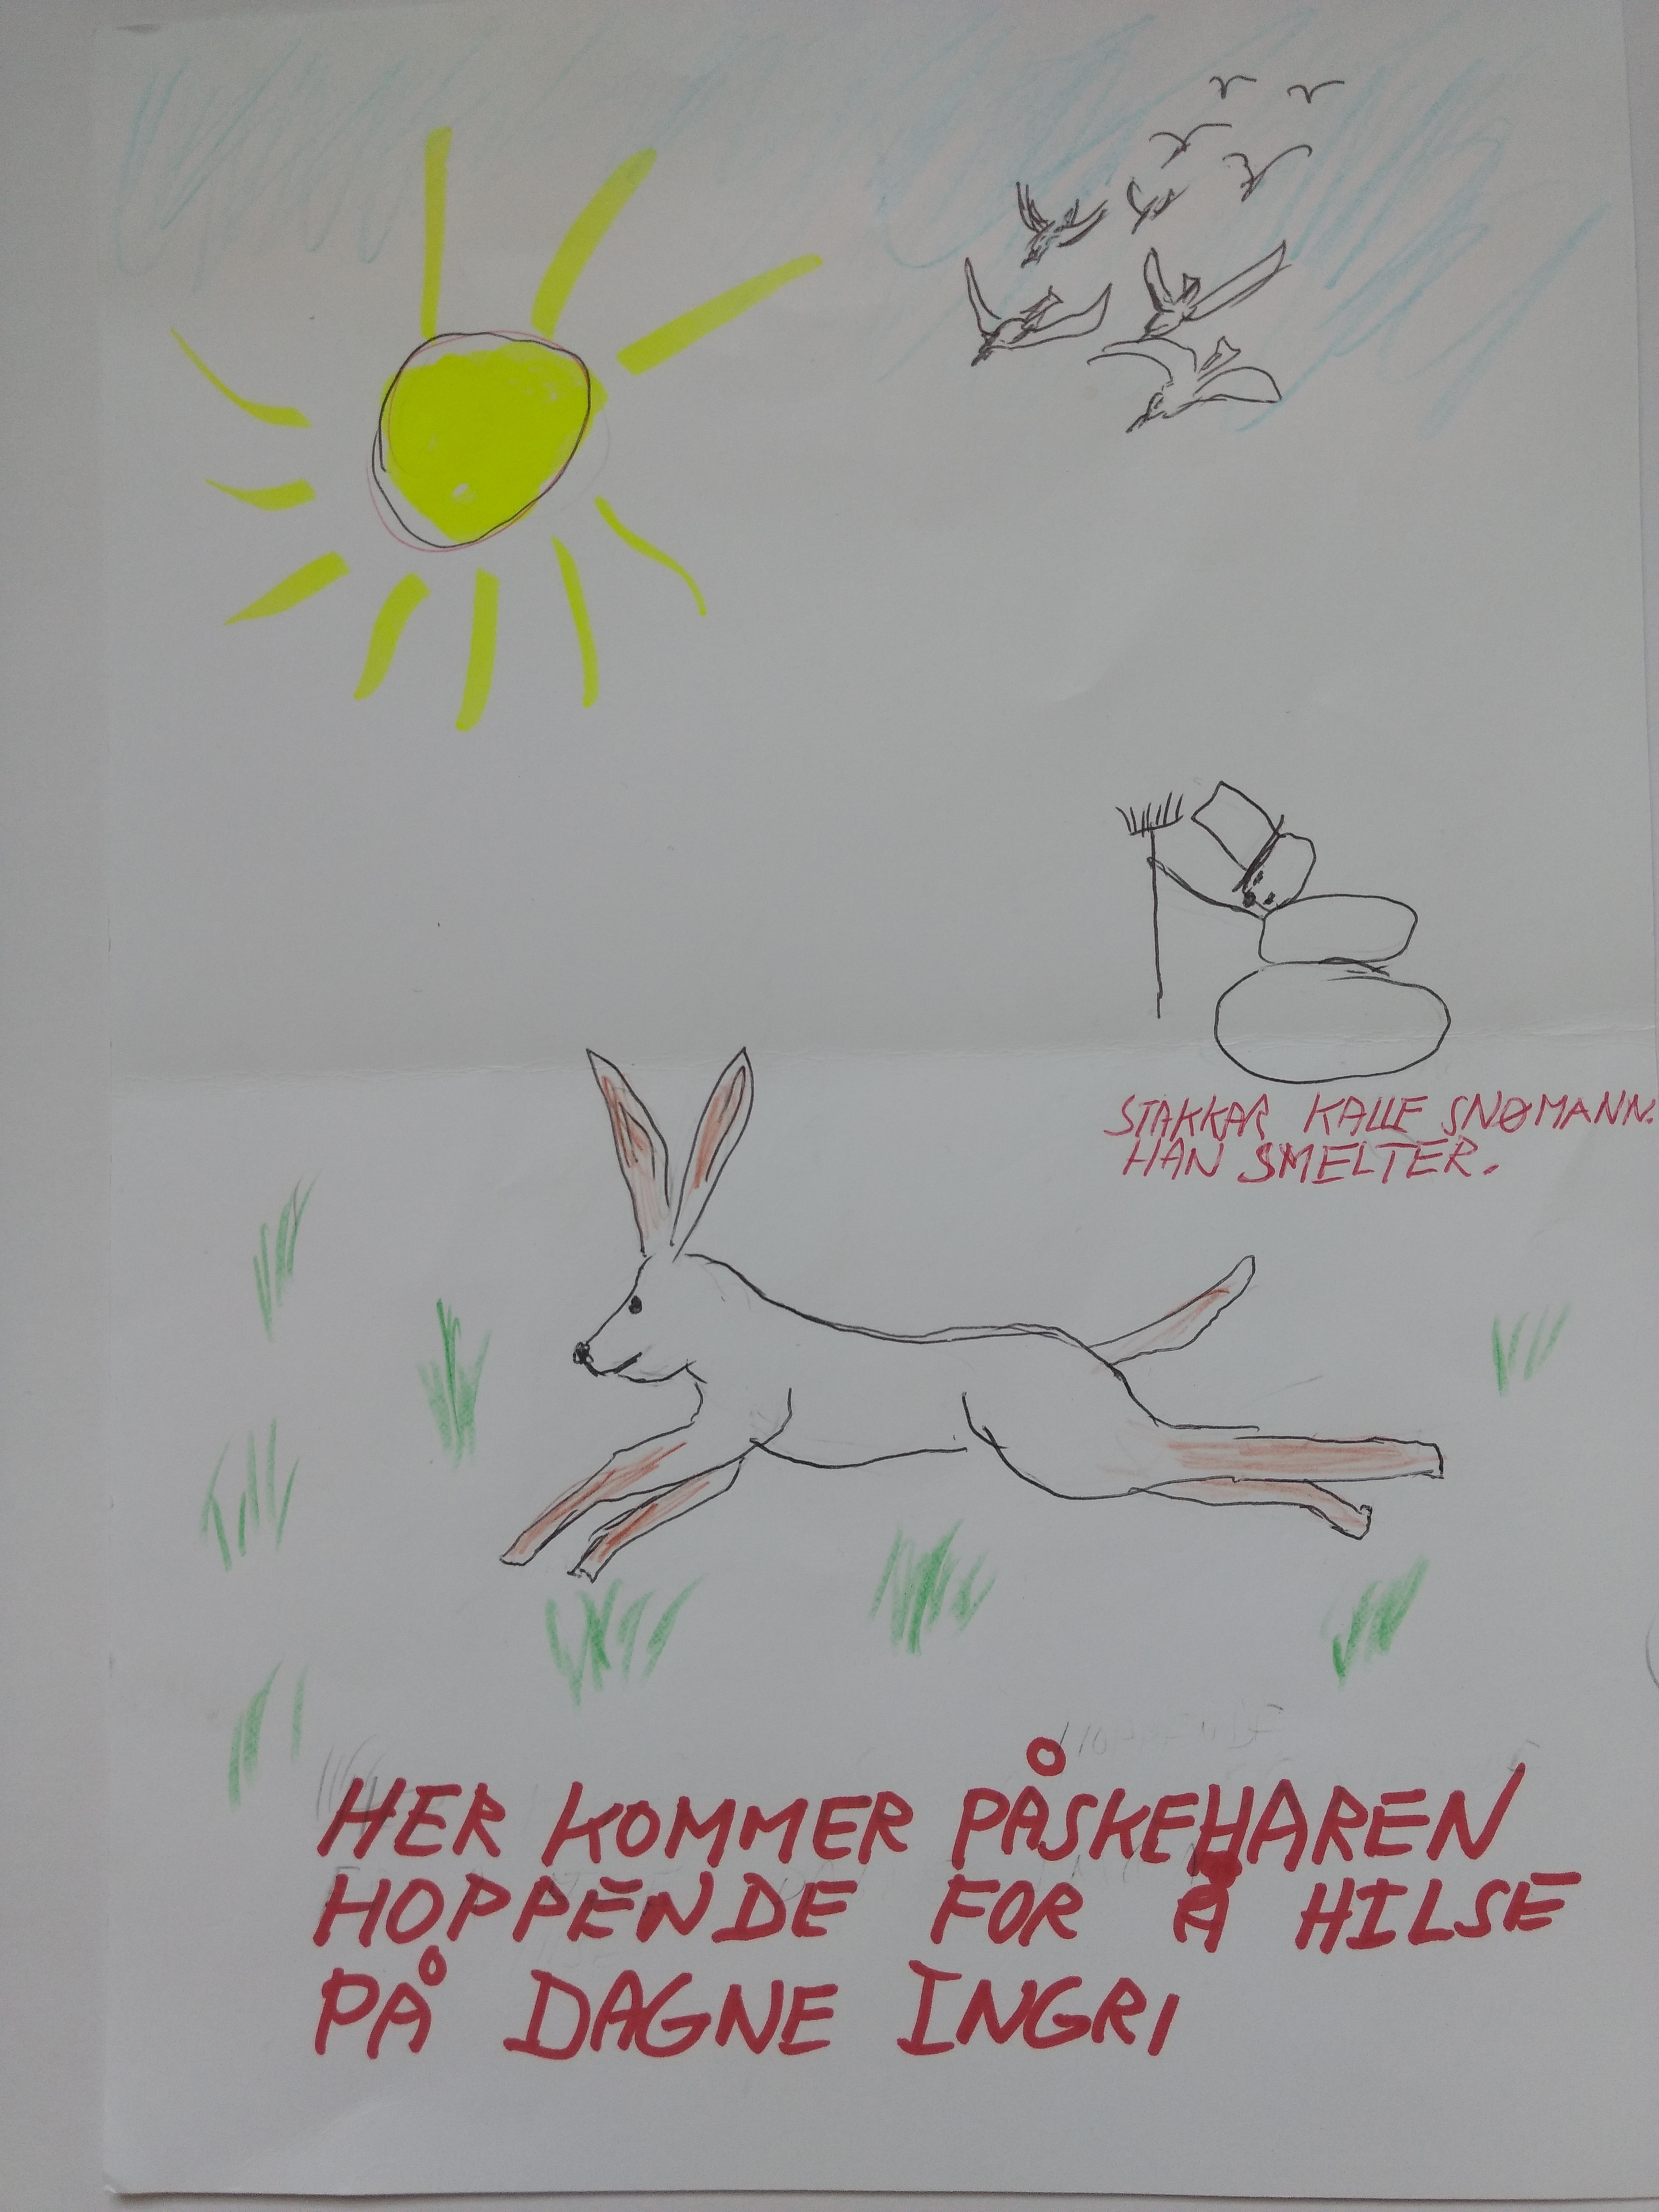 STAKKAR KALLE SNØMANN.
HAN SMELTER.
HER KOMMER PÅSKEHAREN
HOPPENDE FOR Å HILSE
PÅ DAGNE INGRI